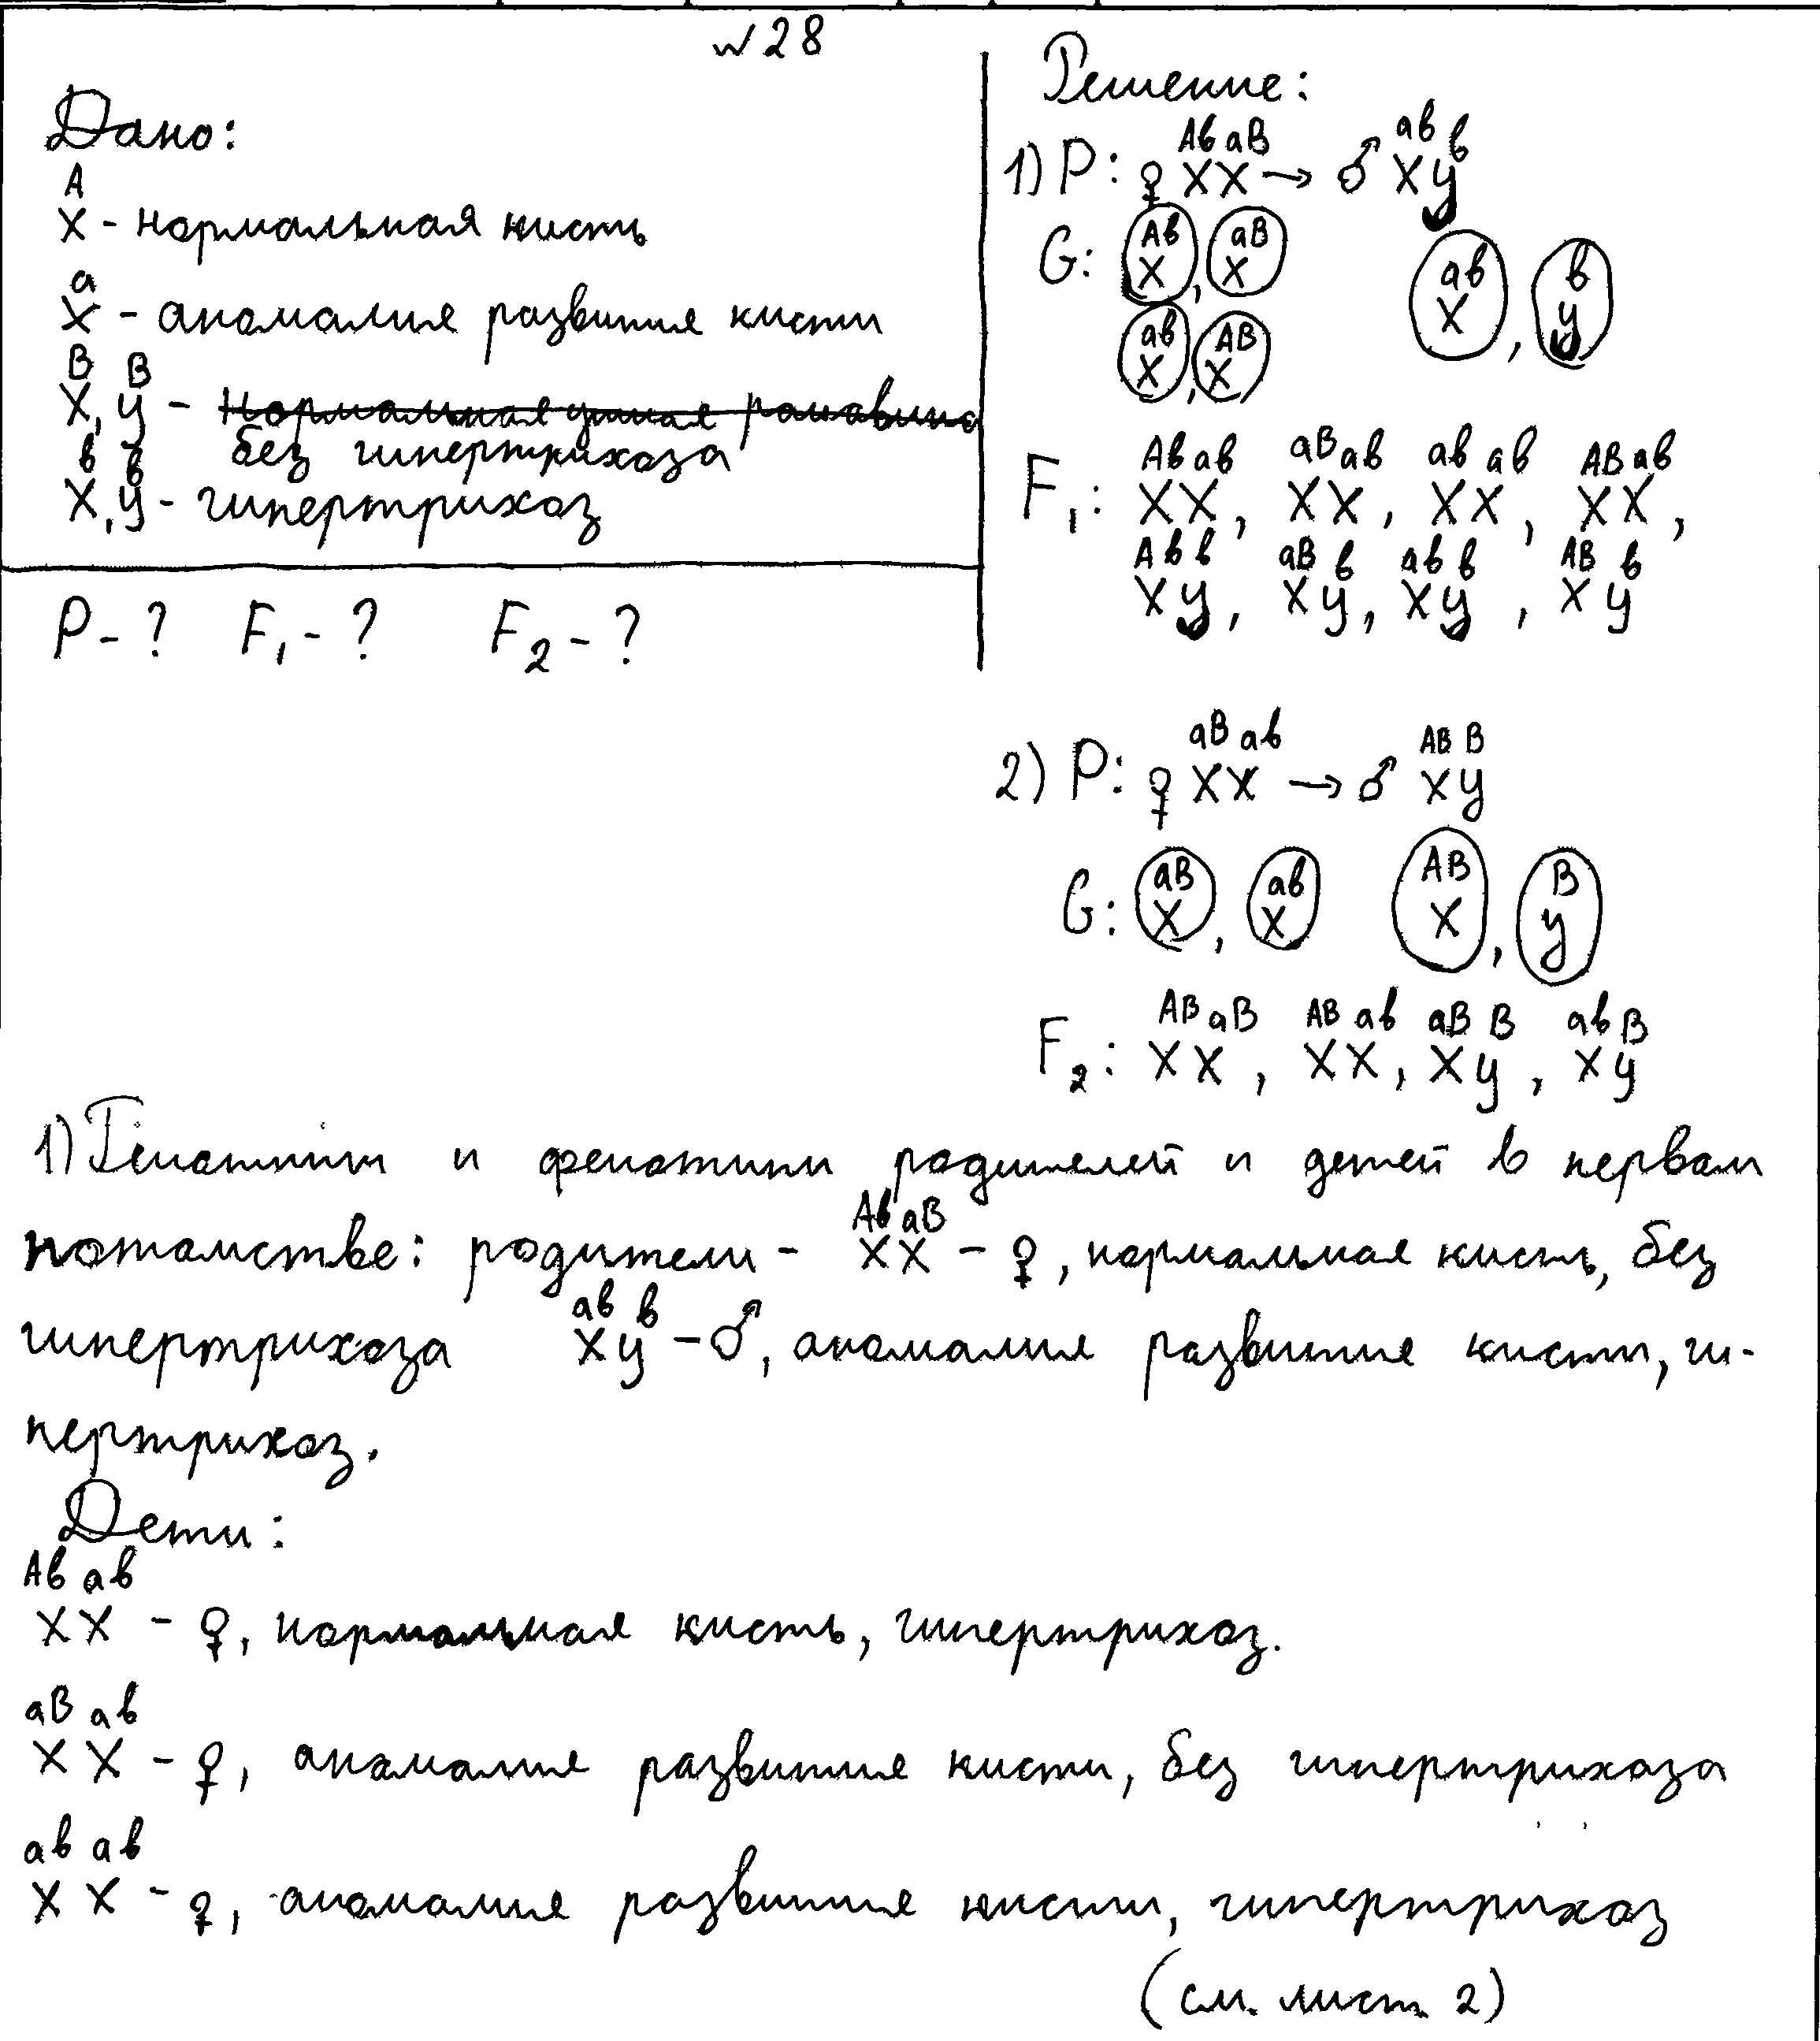 №28
Дано:
X^A - нормальная кисть
X^a - аномалия развития кисти
X^B, y^B - нормальная ушная раковина
без гипертрихоза
X^в, y^в - гипертрихоз
P-? F₁-? F₂-?
Решение:
1) P: ♀ X^Aв X^aB → ♂ X^aв y^в
G: X^Aв, X^aB X^aв, y^в
X^aв, X^AB
F₁: X^Aв X^aв, X^aB X^aв, X^aв X^aв, X^AB X^aв,
X^Aв y^в, X^aB y^в, X^aв y^в, X^AB y^в
2) P: ♀ X^aB X^aв → ♂ X^AB y^B
G: X^aB, X^aв X^AB, y^B
F₂: X^AB X^aB, X^AB X^aв, X^aB y^B, X^aв y^B
1) Генотипы и фенотипы родителей и детей в первом
потомстве: родители - X^Aв X^aB - ♀, нормальная кисть, без
гипертрихоза X^aв y^в - ♂, аномалия развития кисти, ги-
пертрихоз.
Дети:
X^Aв X^aв - ♀, нормальная кисть, гипертрихоз.
X^aB X^aв - ♀, аномалия развития кисти, без гипертрихоза
X^aв X^aв - ♀, аномалия развития кисти, гипертрихоз
(см. лист 2)